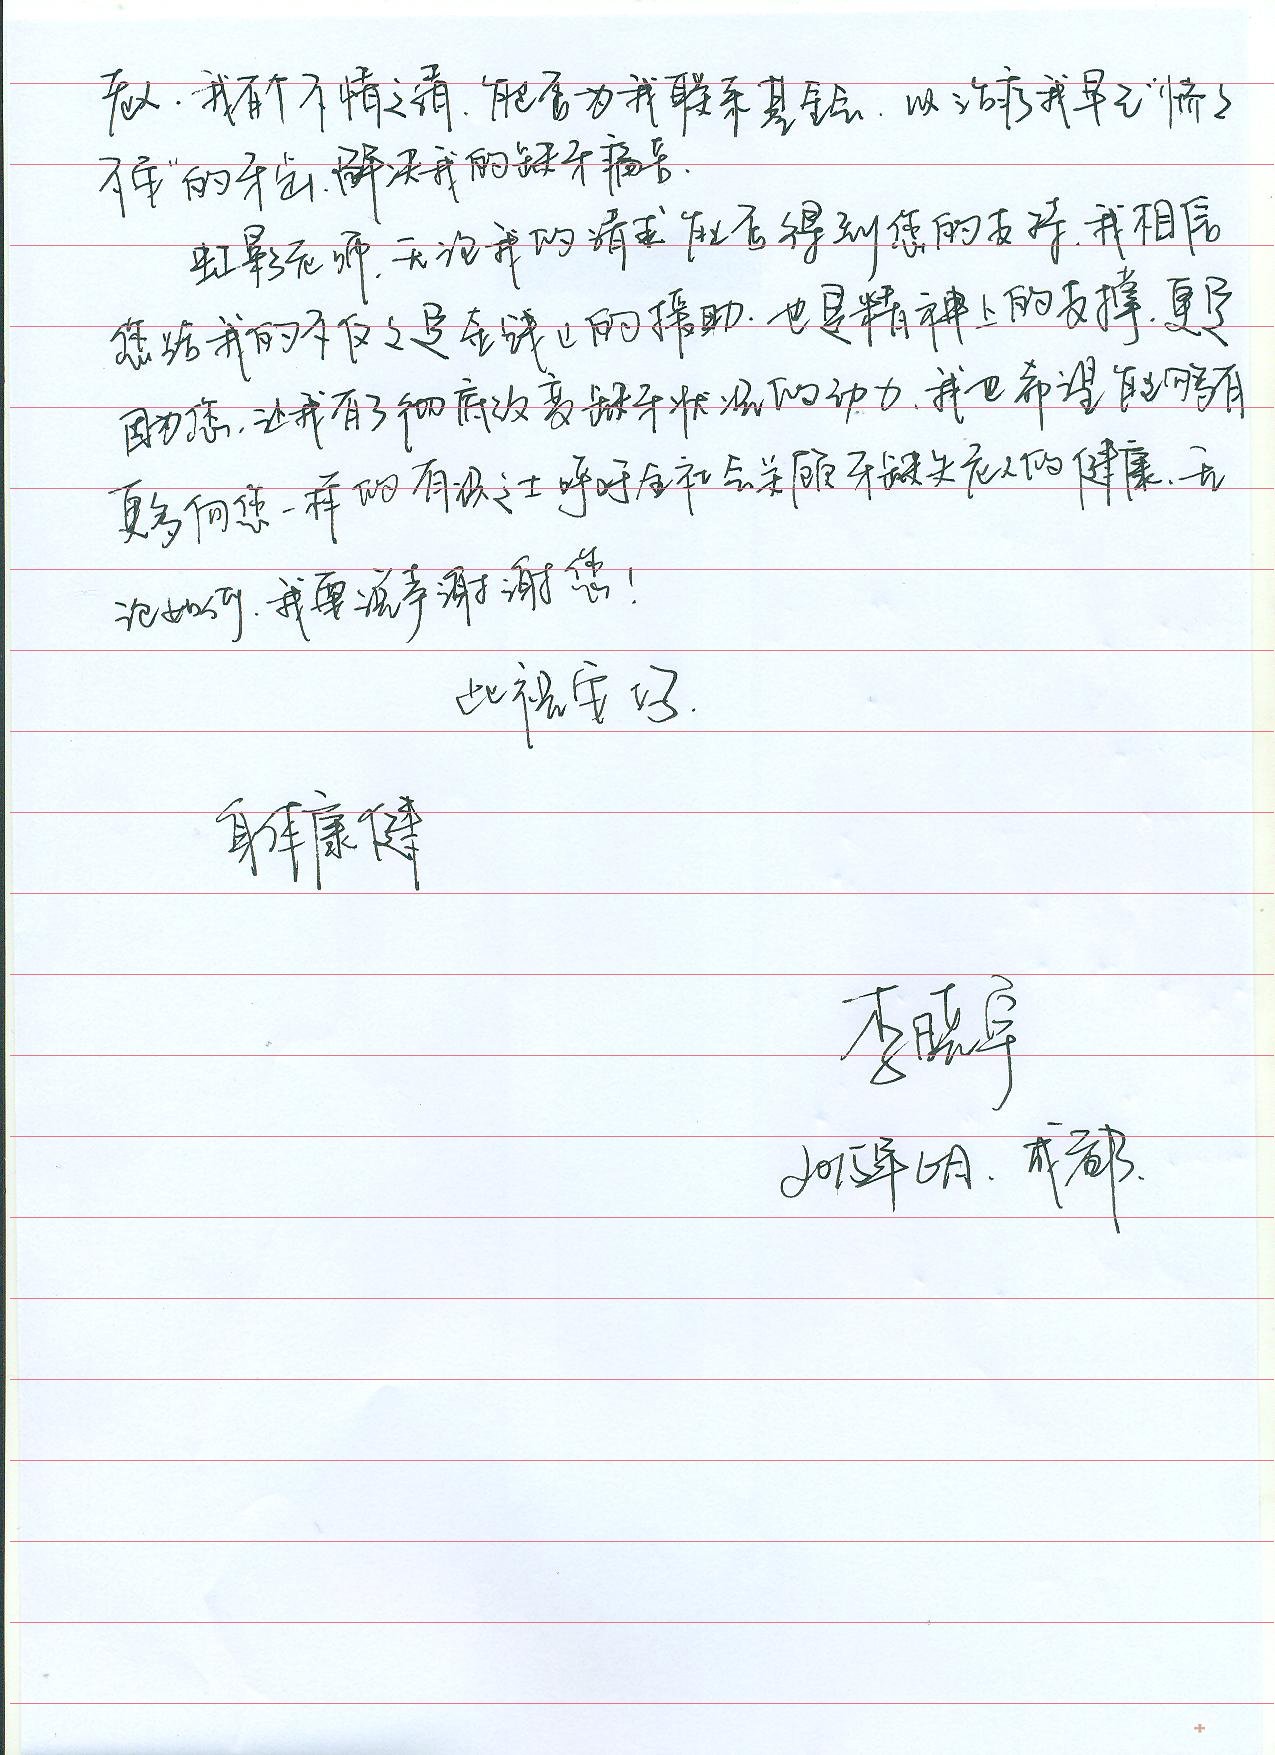 在此、我有个不情之请、能否为我联系基金会、以治疗我早已"惨不
忍睹"的牙齿、解决我的缺牙痛苦.
虹影老师、无论我的请求能否得到您的支持、我相信
您给我的不仅仅是金钱上的援助、也是精神上的支撑、更是
因为您、让我有了彻底改变缺牙状况的动力、我也希望能够有
更多何您一样的有识之士呼吁全社会关顾牙缺失老人的健康、无
论如何、我要说声谢谢您!
此祝安好.
身体康健
李晓
2015年6月、成都.